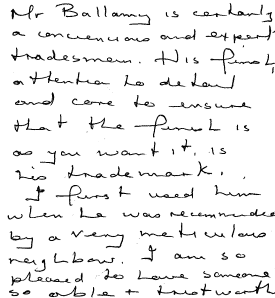 Mr Ballamy is certainly
a conciencious and expert
tradesman. His finish,
attention to detail
and care to ensure
that the finish is
as you want it, is
his trademark.
I first used him
when he was recommended
by a very meticulous
neighbour. I am so
pleased to have someone
so able + trustworth